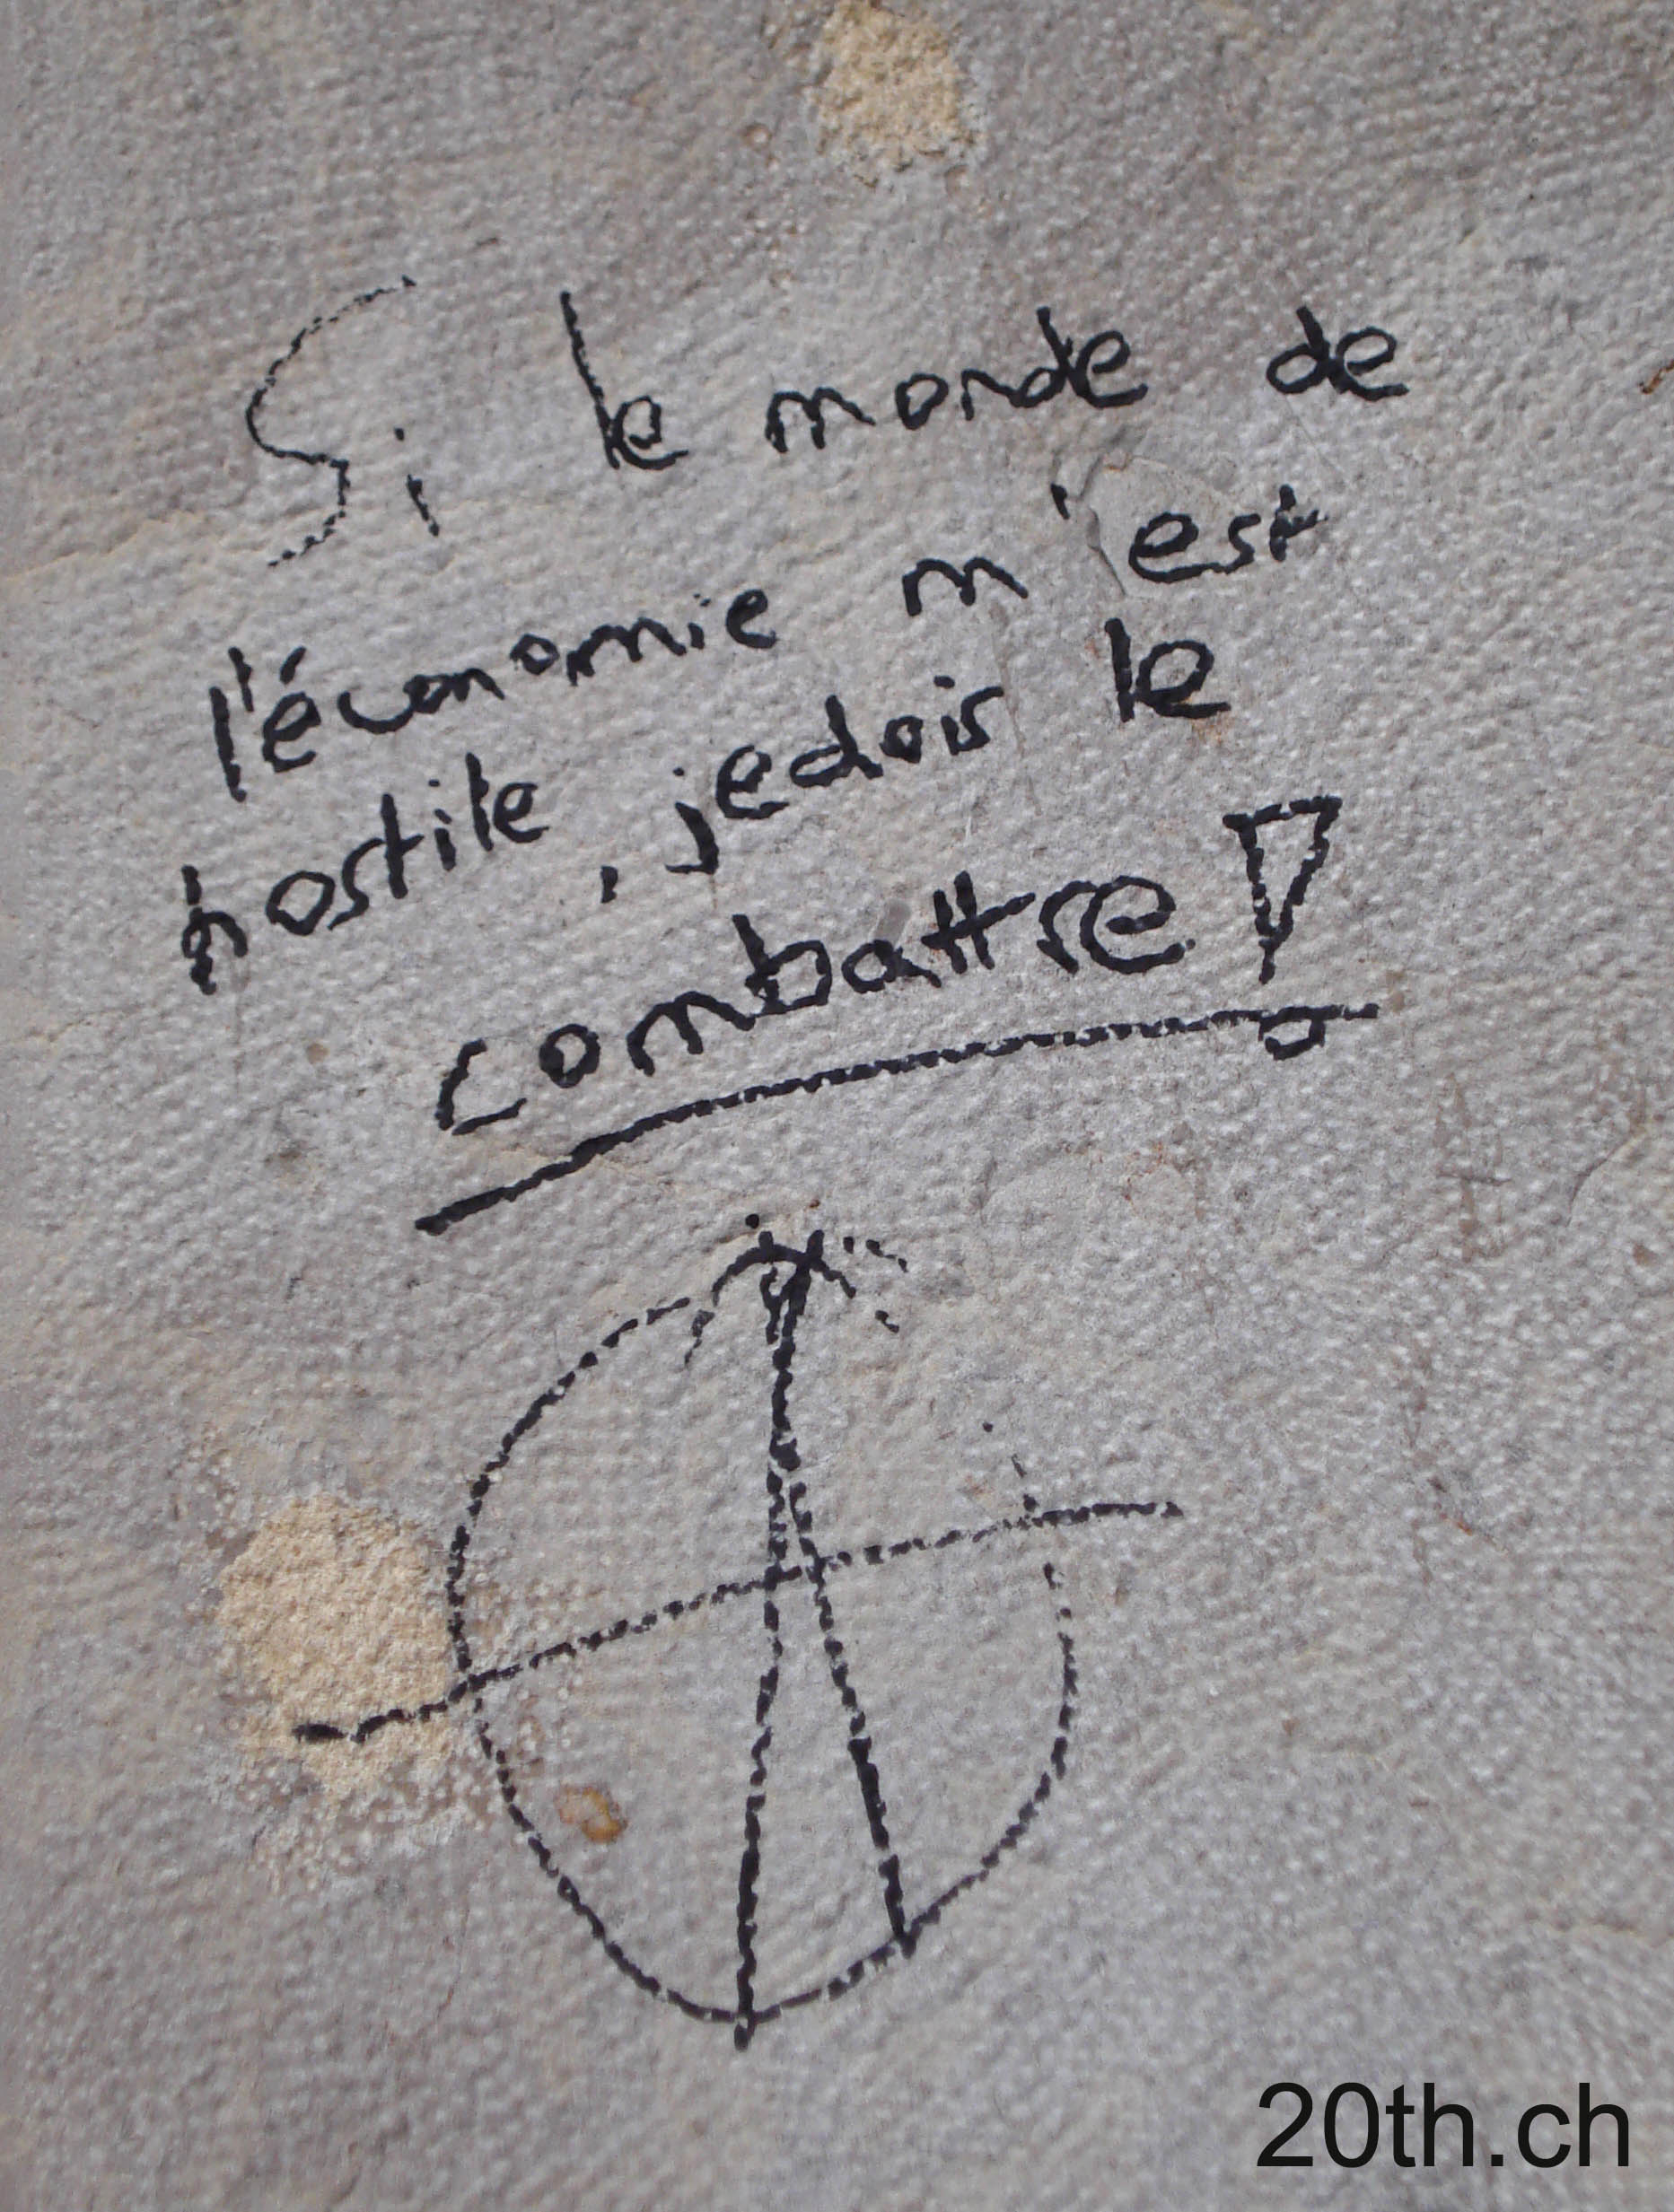 Si le monde de
l'économie m'est
hostile, je dois le
combattre!
20th.ch